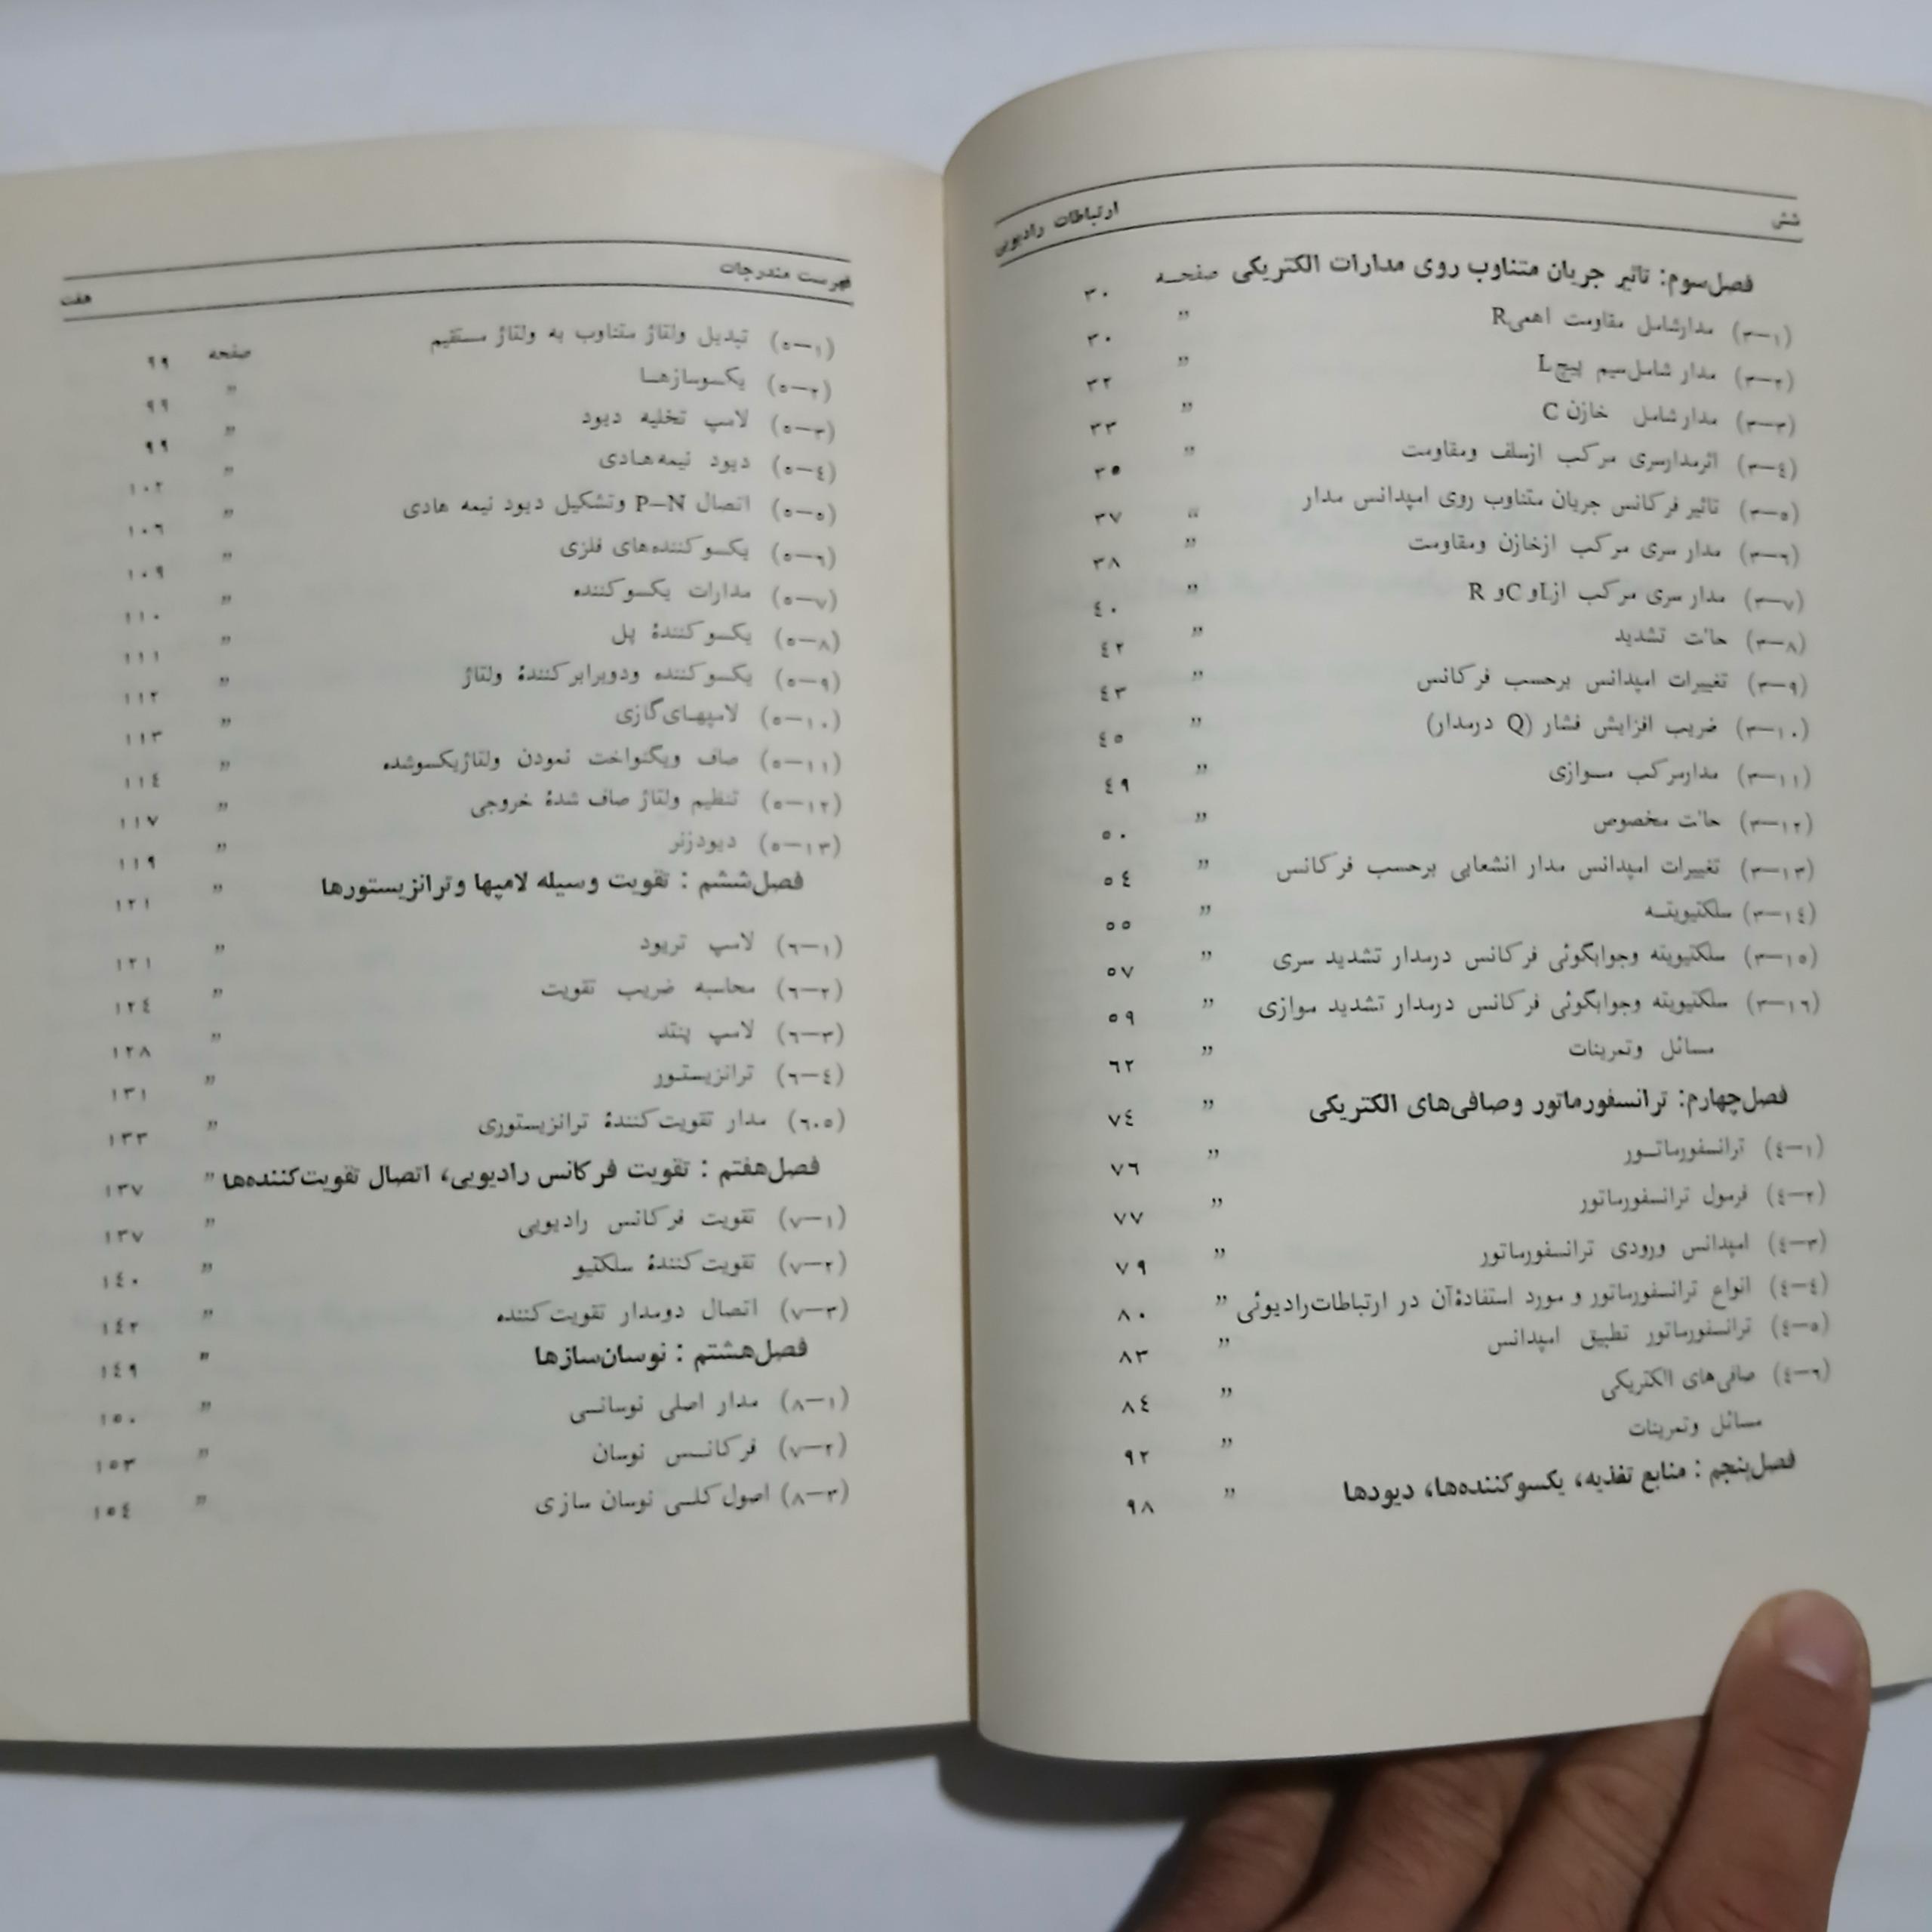 شش
ارتباطات رادیویی
فصل سوم: تاثیر جریان متناوب روی مدارات الکتریکی صفحـه ۳۰
(۳—۱) مدارشامل مقاومت اهمی R ” ۳۰
(۳—۲) مدار شامل سیم پیچ L ” ۳۲
(۳—۳) مدار شامل خازن C ” ۳۳
(۳—٤) اثرمدارسری مرکب ازسلف ومقاومت ” ۳۵
(۳—۵) تاثیر فرکانس جریان متناوب روی امپدانس مدار “ ۳۷
(۳—٦) مدار سری مرکب ازخازن ومقاومت ” ۳۸
(۳—۷) مدار سری مرکب از L و C و R ” ٤۰
(۳—۸) حالت تشدید ” ٤۲
(۳—۹) تغییرات امپدانس برحسب فرکانس ” ٤۳
(۳—۱۰) ضریب افزایش فشار (Q درمدار) ” ٤۵
(۳—۱۱) مدارمرکب مـوازی ” ٤۹
(۳—۱۲) حالت مخصوص ” ۵۰
(۳—۱۳) تغییرات امپدانس مدار انشعابی برحسب فرکانس ” ۵٤
(۳—۱٤) سلکتیویتـه ” ۵۵
(۳—۱۵) سلکتیویته وجوابگوئی فرکانس درمدار تشدید سری ” ۵۷
(۳—۱٦) سلکتیویته وجوابگوئی فرکانس درمدار تشدید موازی ” ۵۹
مسائل وتمرینات ” ٦۲
فصل چهارم: ترانسفورماتور وصافی‌های الکتریکی ” ۷٤
(٤—۱) ترانسفورماتـور ” ۷٦
(٤—۲) فرمول ترانسفورماتور ” ۷۷
(٤—۳) امپدانس ورودی ترانسفورماتور ” ۷۹
(٤—٤) انواع ترانسفورماتور و مورد استفادهٔ آن در ارتباطات رادیوئی ” ۸۰
(٤—۵) ترانسفورماتور تطبیق امپدانس ” ۸۳
(٤—٦) صافی‌های الکتریکی ” ۸٤
مسائل وتمرینات ” ۹۲
فصل پنجم : منابع تغذیه، یکسوکننده‌ها، دیودها ” ۹۸
فهرست مندرجات
هفت
(۵—۱) تبدیل ولتاژ متناوب به ولتاژ مستقیم صفحه ۹۹
(۵—۲) یکسوسازهـا ” ۹۹
(۵—۳) لامپ تخلیه دیود ” ۹۹
(۵—٤) دیود نیمه‌هـادی ” ۱۰۲
(۵—۵) اتصال P—N وتشکیل دیود نیمه هادی ” ۱۰٦
(۵—٦) یکسوکننده‌های فلزی ” ۱۰۹
(۵—۷) مدارات یکسوکننده ” ۱۱۰
(۵—۸) یکسوکنندهٔ پل ” ۱۱۱
(۵—۹) یکسوکننده ودوبرابرکنندهٔ ولتاژ ” ۱۱۲
(۵—۱۰) لامپهـای گازی ” ۱۱۳
(۵—۱۱) صاف ویکنواخت نمودن ولتاژیکسوشده ” ۱۱٤
(۵—۱۲) تنظیم ولتاژ صاف شدهٔ خروجی ” ۱۱۷
(۵—۱۳) دیودزنر ” ۱۱۹
فصل ششم : تقویت وسیله لامپها وترانزیستورها ” ۱۲۱
(٦—۱) لامپ تریود ” ۱۲۱
(٦—۲) محاسبه ضریب تقویت ” ۱۲٤
(٦—۳) لامپ پنتد ” ۱۲۸
(٦—٤) ترانزیستـور ” ۱۳۱
(٦۰۵) مدار تقویت‌کنندهٔ ترانزیستوری ” ۱۳۳
فصل هفتم : تقویت فرکانس رادیویی، اتصال تقویت‌کننده‌ها ” ۱۳۷
(۷—۱) تقویت فرکانس رادیویی ” ۱۳۷
(۷—۲) تقویت‌کنندهٔ سلکتیو ” ۱٤۰
(۷—۳) اتصال دومدار تقویت‌کننده ” ۱٤۲
فصل هشتم : نوسان‌سازها ” ۱٤۹
(۸—۱) مدار اصلی نوسانـی ” ۱۵۰
(۷—۲) فرکانـس نوسان ” ۱۵۳
(۸—۳) اصول کلـی نوسان سازی ” ۱۵٤